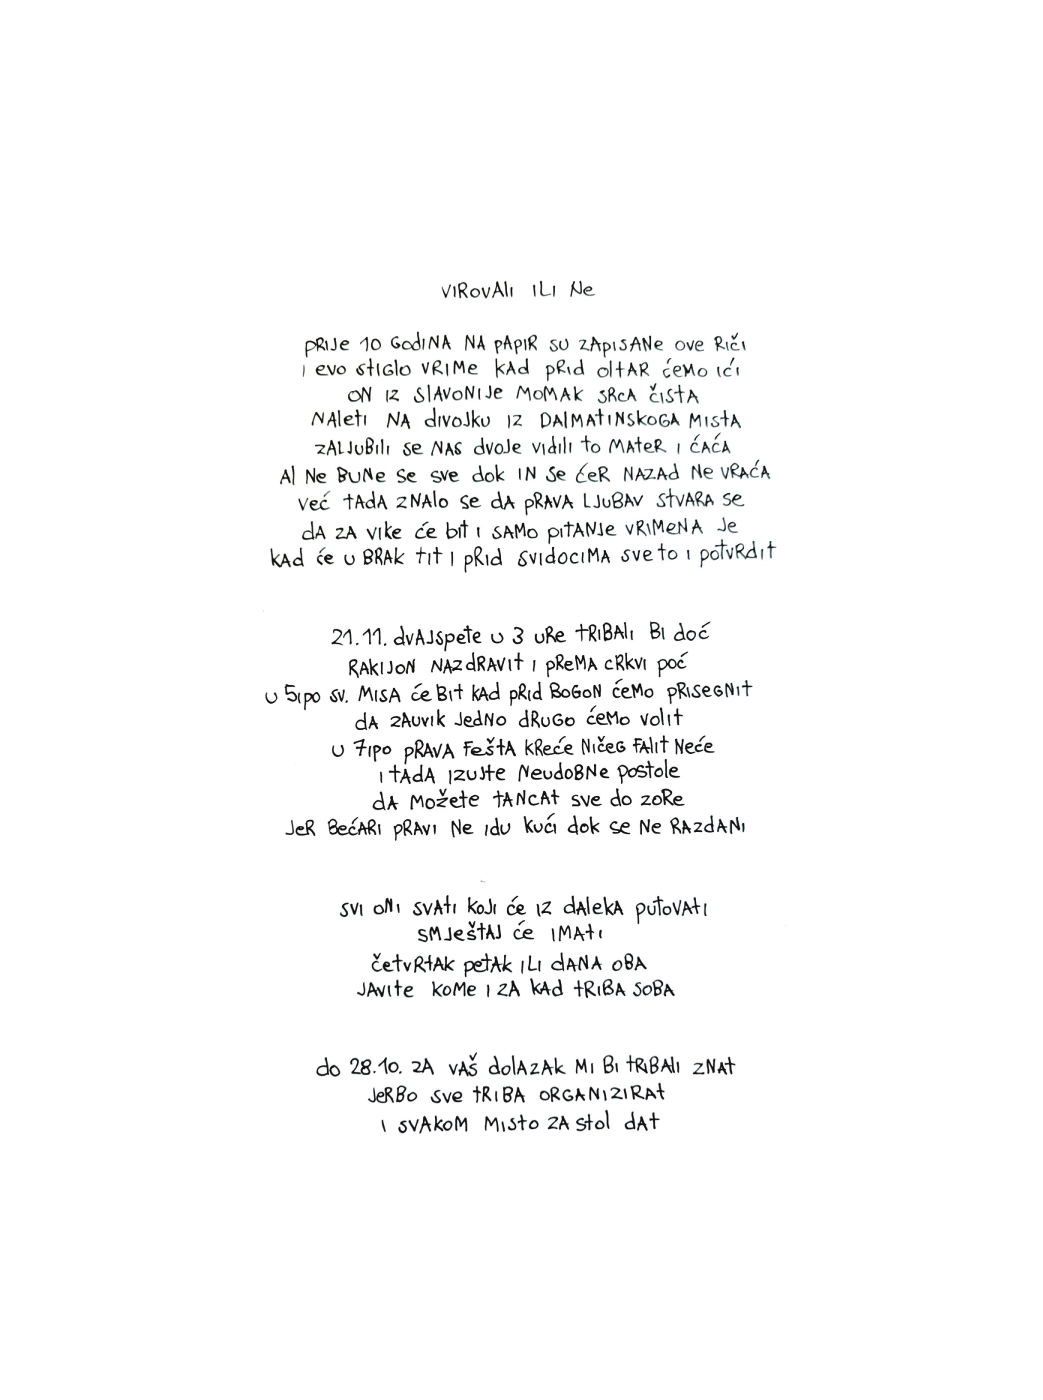 VIROVALI ILI NE
PRIJE 10 GODINA NA PAPIR SU ZAPISANE OVE RIČI
I EVO STIGLO VRIME KAD PRID OLTAR ĆEMO IĆI
ON IZ SLAVONIJE MOMAK SRCA ČISTA
NALETI NA DIVOJKU IZ DALMATINSKOGA MISTA
ZALJUBILI SE NAS DVOJE VIDILI TO MATER I ĆAĆA
AL NE BUNE SE SVE DOK IN SE ĆER NAZAD NE VRAĆA
VEĆ TADA ZNALO SE DA PRAVA LJUBAV STVARA SE
DA ZA VIKE ĆE BIT I SAMO PITANJE VRIMENA JE
KAD ĆE U BRAK TIT I PRID SVIDOCIMA SVE TO I POTVRDIT
21.11. DVAJSPETE U 3 URE TRIBALI BI DOĆ
RAKIJON NAZDRAVIT I PREMA CRKVI POĆ
U 5IPO SV. MISA ĆE BIT KAD PRID BOGON ĆEMO PRISEGNIT
DA ZAUVIK JEDNO DRUGO ĆEMO VOLIT
U 7IPO PRAVA FEŠTA KREĆE NIČEG FALIT NEĆE
I TADA IZUJTE NEUDOBNE POSTOLE
DA MOŽETE TANCAT SVE DO ZORE
JER BEĆARI PRAVI NE IDU KUĆI DOK SE NE RAZDANI
SVI ONI SVATI KOJI ĆE IZ DALEKA PUTOVATI
SMJEŠTAJ ĆE IMATI
ČETVRTAK PETAK ILI DANA OBA
JAVITE KOME I ZA KAD TRIBA SOBA
DO 28.10. ZA VAŠ DOLAZAK MI BI TRIBALI ZNAT
JERBO SVE TRIBA ORGANIZIRAT
I SVAKOM MISTO ZA STOL DAT